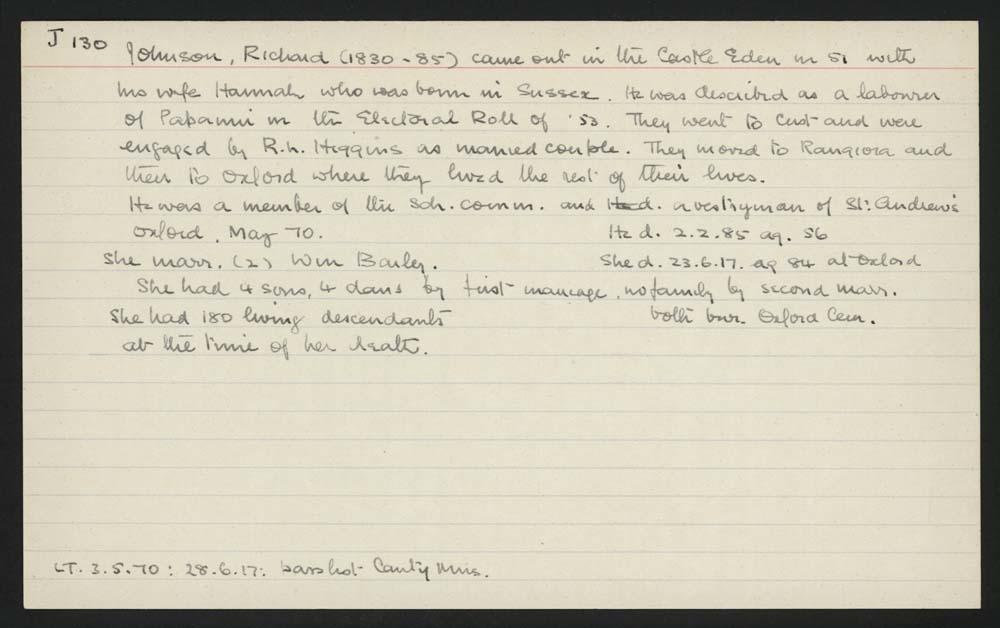 J 130 Johnson, Richard (1830-85) came out in the Castle Eden in 51 with
his wife Hannah who was born in Sussex. He was described as a labourer
of Papanui in the Electoral Roll of '53. They went to Cust and were
engaged by R.h. Higgins as married couple. They moved to Rangiora and
then to Oxford where they lived the rest of their lives.
He was a member of the Sch. comm. and H̶e̶ ̶d̶. a vestryman of St. Andrew's
Oxford, May 70. He d. 2.2.85 ag. 56
She marr. (2) Wm Bailey. She d. 23.6.17. ag 84 at Oxford
She had 4 sons, 4 daus by first marriage, no family by second marr.
She had 180 living descendants both bur. Oxford Cem.
at the time of her death.
LT. 3.5.70 : 28.6.17: pass list Canty Mus.